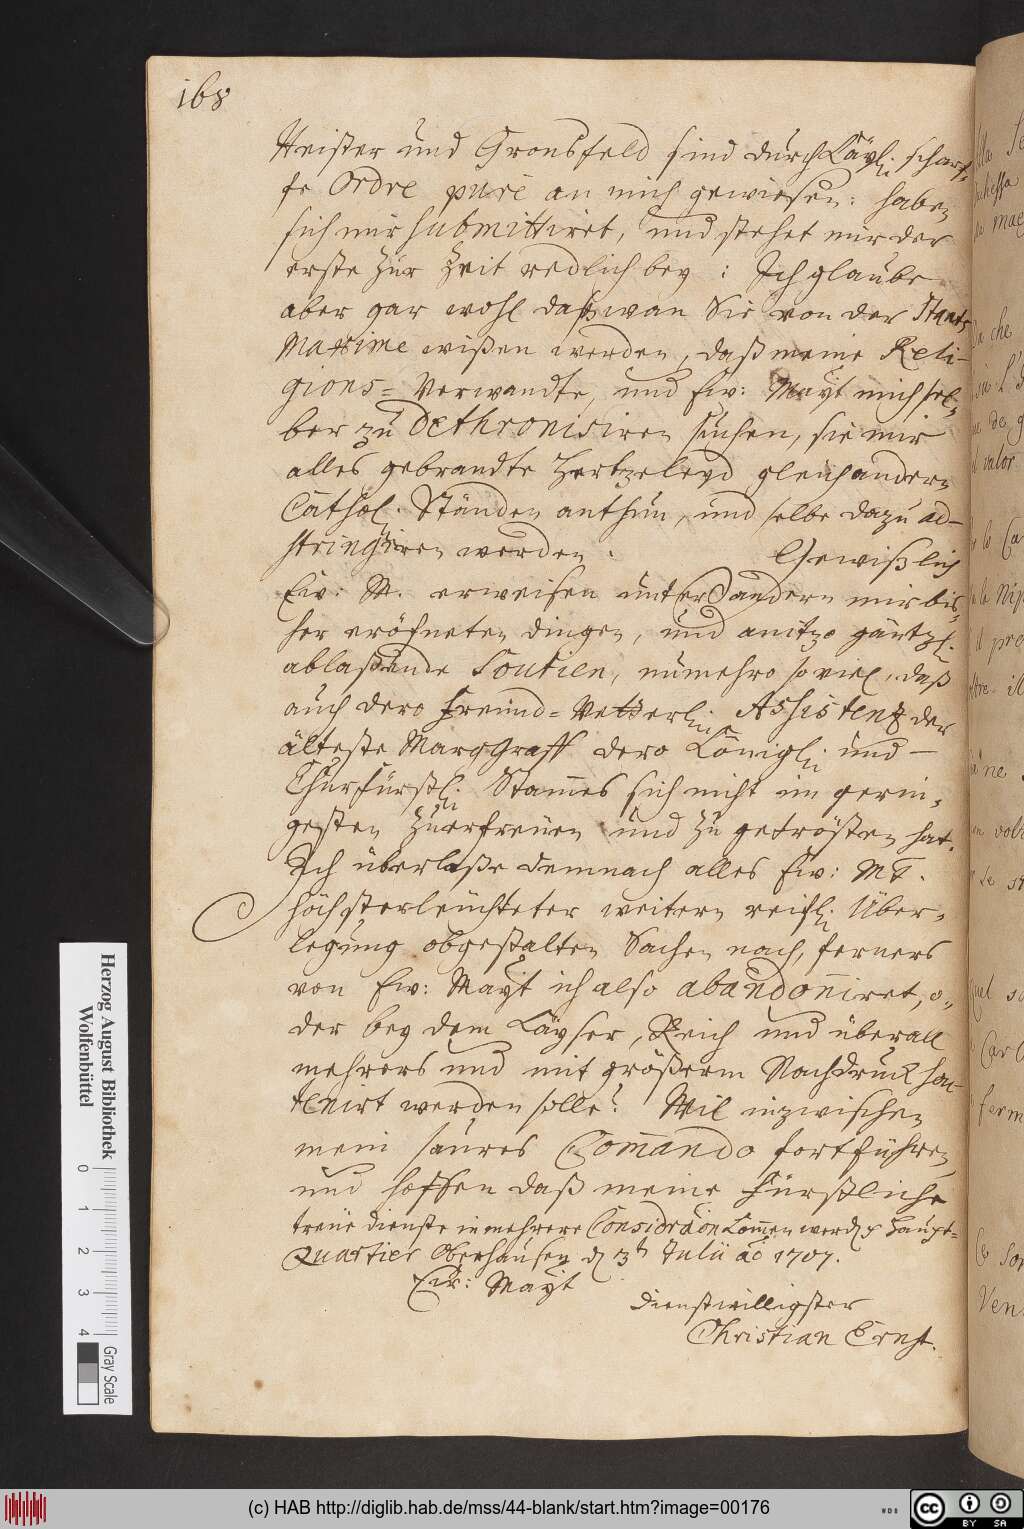 168
Heister und Gronsfeld sind durch Käyl. scharf-
fe Ordre pure an mich gewiesen: haben
sich mir submittiret, und stehet mir der
erste zur Zeit redlich bey: Ich glaube
aber gar wohl daß wan Sie von der Staats
Maxime wißen werden, daß meine Reli-
gions- Verwandte, und Ew: Mayt mich sel-
ber zu dethronisiren suchen, sie mir
alles gebrandte Hertzeleyd gleich andern
Cathol. Ständen anthun, und selbe dazu ad-
stringiren werden. Gewißlich
Ew: M. erweisen unter andern mir bis-
her eröfneten dingen, und anitzo gäntzl.
ablaßende Soutien, numehro so viel, daß
auch dero Freund-Vetterl. Assistentz der
älteste Marggraff dero Königl. und
Churfürstl. Stam̄es sich nicht im gerin-
gesten zu erfreuen und zu getrösten hat.
Ich überlaße demnach alles Ew: MT.
höchsterleuchteter weitern reifl. Über-
legung obgestalten Sachen nach, ferners
von Ew: Mayt ich also abandon̄iret, o-
der bey dem Käyser, Reich und überall
mehrers und mit größerm Nachdruck sou-
tenirt werden solle? Wil inzwischen
mein saures Com̄ando fortführen,
und hoffen daß meine Fürstliche
treue dienste in mehrere Consideraōn kom̄en werd. Haupt-
Quartier Oberhausen d 3t Julii aō 1707.
Ew: Mayt
dienstwilligster
Christian Ernst.
Herzog August Bibliothek
Wolfenbüttel
0 1 2 3 4
Gray Scale
(c) HAB http://diglib.hab.de/mss/44-blank/start.htm?image=00176
WDB
CC BY SA